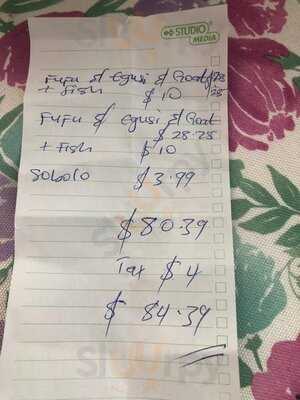 STUDIO
MEDIA
Fufu & Egusi & Goat $28
+ fish $10 .25
Fufu & Egusi & Goat
$28.25
+ Fish $10
Sobolo $3.99
$80.39
Tax $4
$84.39